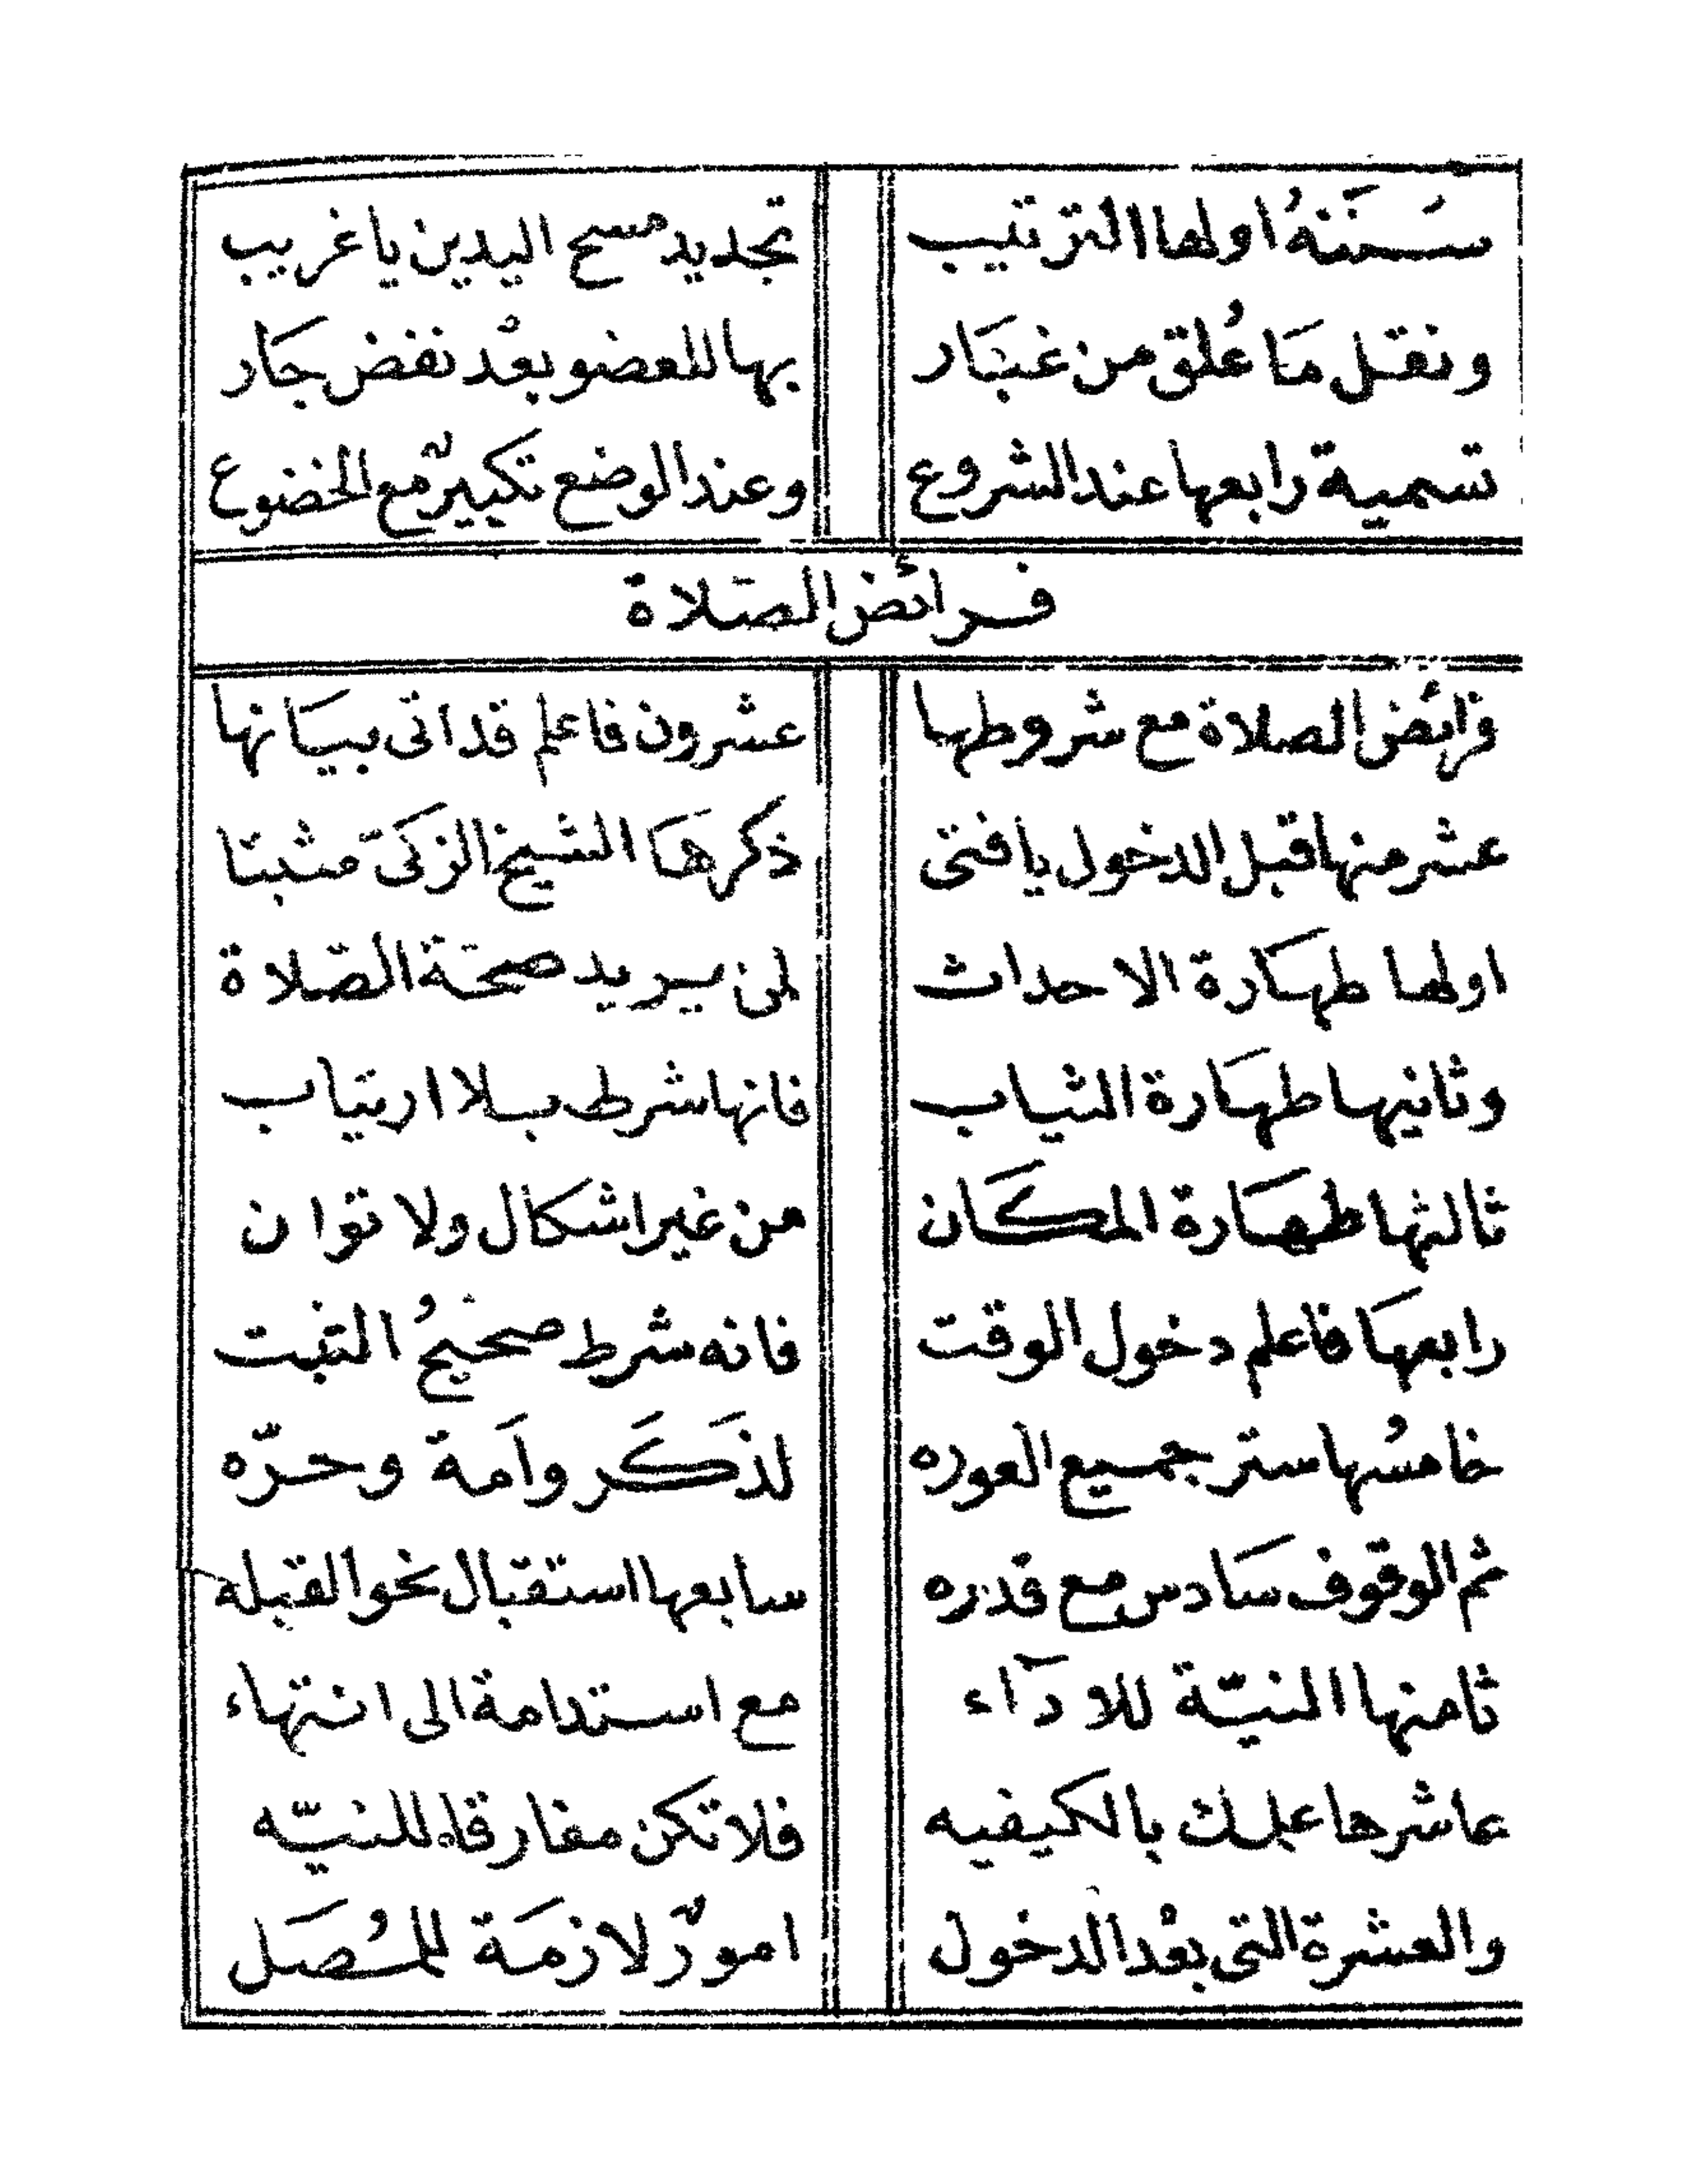 سَنَنُهُ اولها الترتيب تجديد مسح اليدين يا غريب
ونقل مَا عُلق من غبَار بها للعضو بعْد نفض جَار
تسمية رابعها عند الشروع وعند الوضع تكبيرٌ مع الخضوع
فرائض الصَلاة
فرائض الصلاة مع شروطها عشرون فاعلم قد اتى بيَانها
عشر منها قبل الدخول يا فتى ذكرهَا الشيخ الزكَىّ مثبتا
اولها طهَارة الاحداث لمن يريد صحَة الصَلاة
وثانيها طهَارة الثياب فانها شرط بلا ارتياب
ثالثها طهَارة المكَان من غير اشكال ولا توان
رابعهَا فاعلم دخول الوقت فانه شرط صحيحُ الثبت
خامسُها ستر جميع العوره لذَكَر وآمة وحرّه
ثم الوقوف سَادس مع قدره سابعها استقبال نحو القبله
ثامنها النيّة للادآء مع استدامة الى انتهاء
عاشرها علمك بالكيفيه فلا تكن مفارقا للنيّه
والعشرة التى بعْد الدخول امورٌ لازمَة للمُصَل